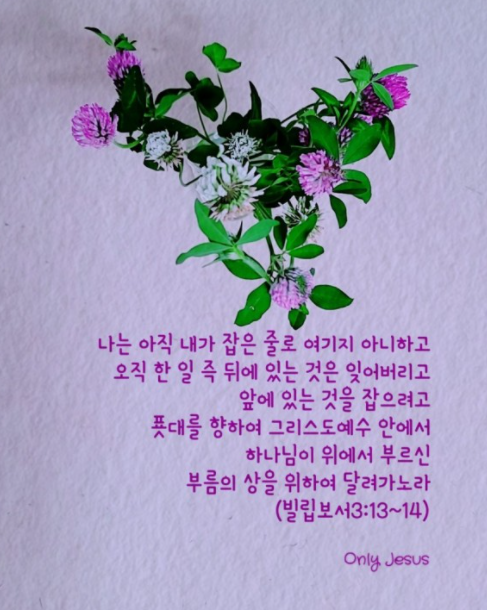 나는 아직 내가 잡은 줄로 여기지 아니하고
오직 한 일 즉 뒤에 있는 것은 잊어버리고
앞에 있는 것을 잡으려고
푯대를 향하여 그리스도예수 안에서
하나님이 위에서 부르신
부름의 상을 위하여 달려가노라
(빌립보서3:13~14)
Only Jesus